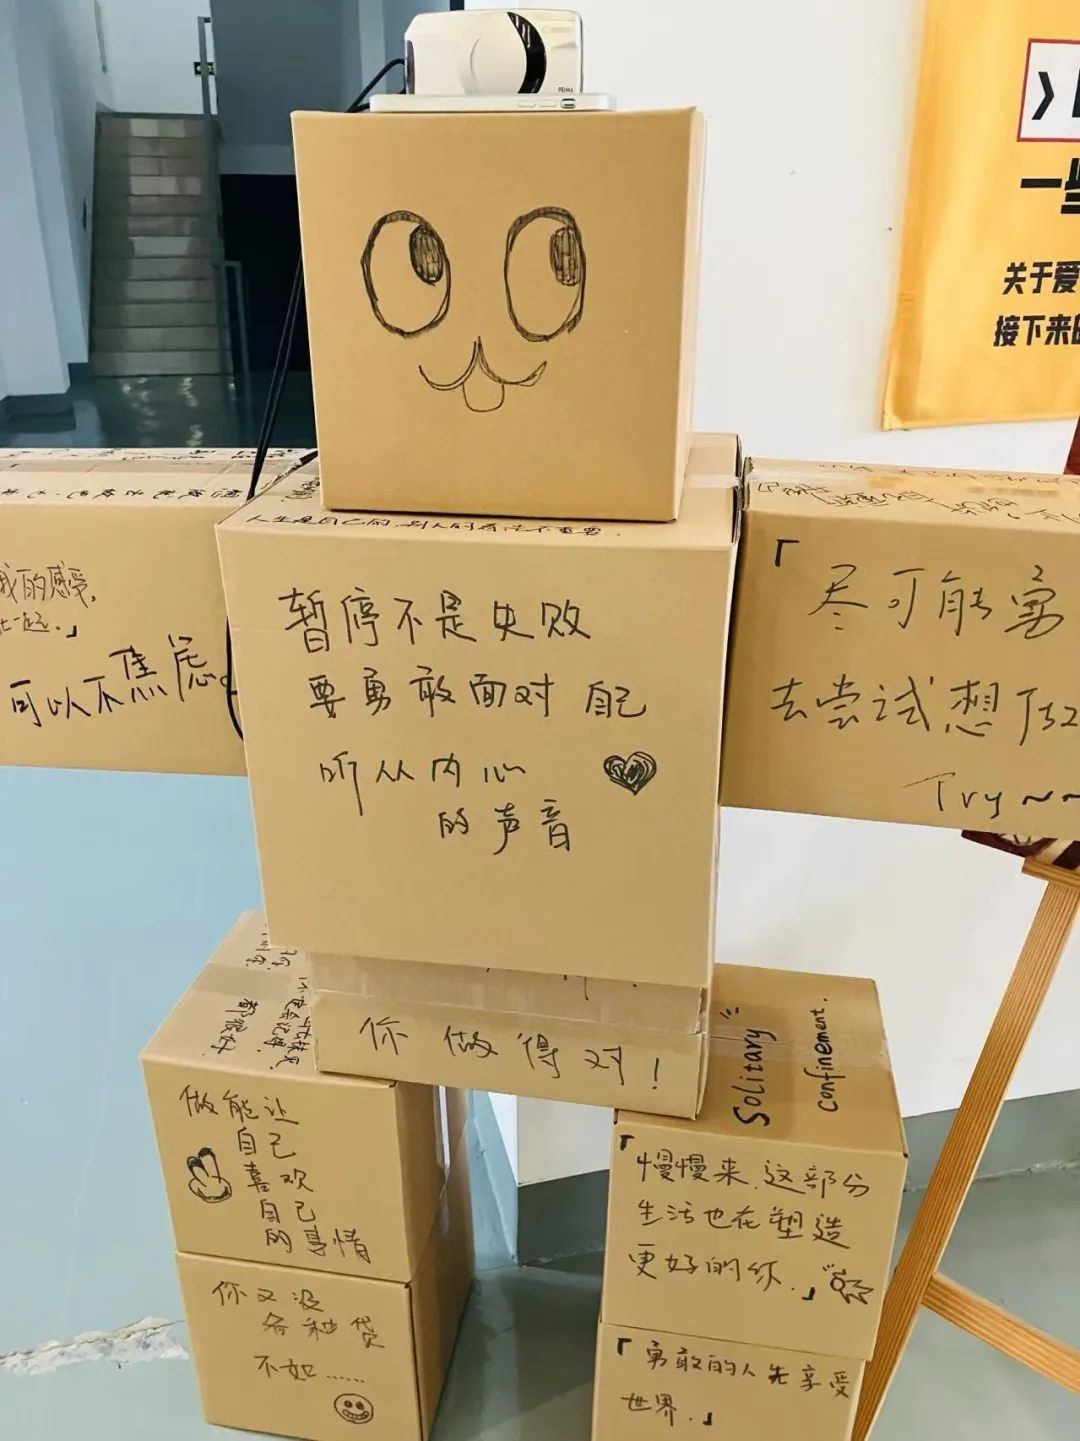 PRIMA
一些
关于爱
接下来的
人生是自己的,别人的看法不重要.
我的感受,
一起.」
可以不焦虑。
暂停不是失败
要勇敢面对自己
听从内心
的声音
「尽可能勇
去尝试想
Try~~
你做得对!
都很好.
Solitary
confinement.
做能让
自己
喜欢
自己
的事情
你又没
各种贷
不如......
「慢慢来,这部分
生活也在塑造
更好的你.」
「勇敢的人先享受
世界.」